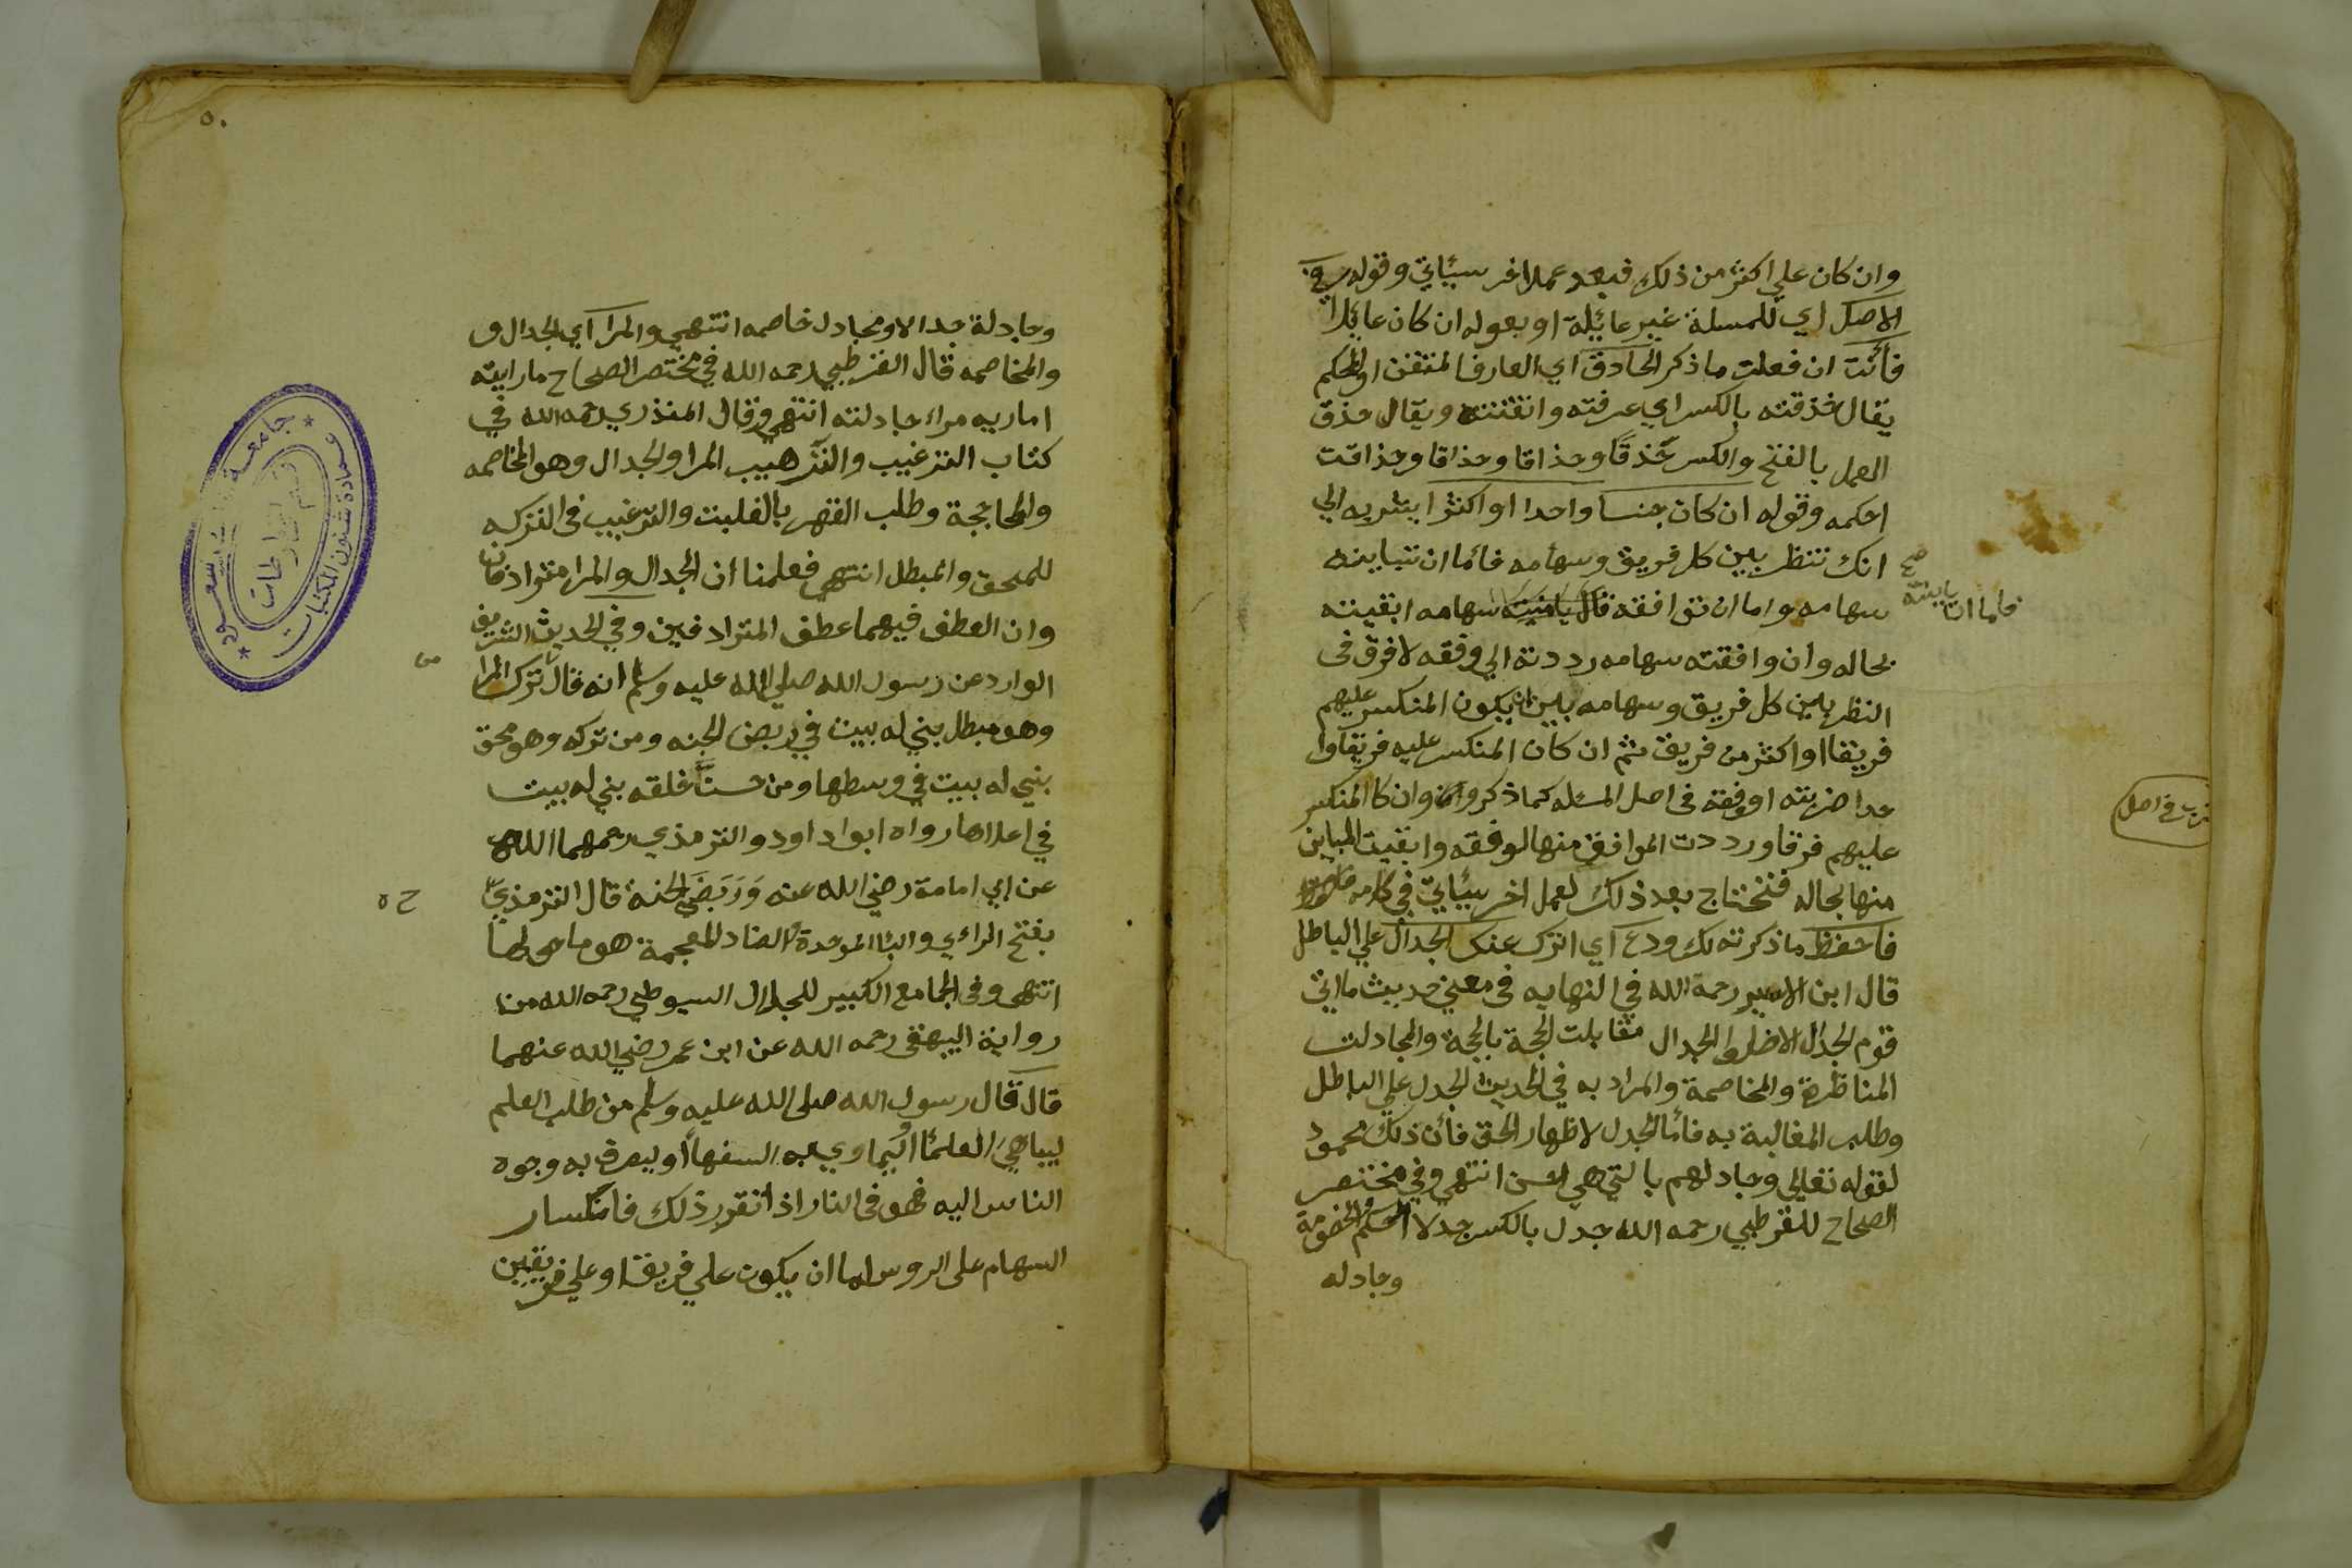 وان كان علي اكثر من ذلك فبعد عملا اخر سيئاتي وقوله في
الاصل اي للمسلة غير عائيلة او بعوله ان كان عائيلا
فأنت ان فعلت ما ذكر الحادق اي العارف المتقن او المحكم
يقال حذقته بالكسر اي عرفته واتقنته ويقال حذق
العمل بالفتح والكسر حذقا وحذاقا وحذاقا وحذاقت
احكمه وقوله ان كان جنسا واحدا او اكثرا يشر به الي
انك تنظر بين كل فريق وسهامه فائما ان تباينه
صح فاما ان تباينته
سهامه واما ان توافقه سهامه ابقيته
بحاله وان وافقته سهامه رددته الي وفقه لا فرق فى
النظر بين كل فريق وسهامه بين ان يكون المنكسر عليهم
فريقا او اكثر من فريق ثم ان كان المنكسر عليه فريقا وا
حدا ضربته او وفقه فى اصل المسئله كما ذكر وان كا المنكسر
ضرب في اصل
عليهم فرقا ورددت الموافق منها لوفقه وابقيت المباين
منها بحاله فتحتاج بعد ذلك لعمل اخر سيئاتي في
فاحفظ ما ذكرته لك ودع اي اترك عنك الجدال علي الباطل
قال ابن الاسير رحمة الله في النهايه فى معني حديث ما اتي
قوم الجدال الا ضلوا الجدال مقابلت الحجة بالحجة والمجادلت
المناظرة والمخاصمة والمراد به في الحديث الجدل علي الباطل
وطلب المغالبة به فائما الجدل لاظهار الحق فأن ذلك محمود
لقوله تعالي وجادلهم بالتي هي احسن انتهي وفي مختصر
الصحاح للقرطبي رحمه الله جدل بالكسر جدلا احكم الخصومة
وجادله
٥٠
وجادلة جدالا ومجادل خاصمه انتهي والمرا اي الجدال و
والمخاصمه قال القرطبي رحمه الله في مختصر الصحاح ماراينه
اماريه مراء جادلته انتهي وقال المنذري رحمه الله في
كتاب الترغيب والترهيب المرا والجدال وهو المخاصمه
والمحاججة وطلب القهر بالغلبت والترغيب فى التركه
للمحق والمبطل انتهي فعلمنا ان الجدال والمرا مترادفان
وان العطف فيهما عطف المترادفين وفي الحديث الشريف
من
الوارد عن رسول الله صلي الله عليه وسلم انه قال ترك المرا
وهو مبطل بني له بيت في ربض الجنه ومن تركه وهو محق
بني له بيت في وسطها ومن حسن خلقه بني له بيت
في اعلاها رواه ابوا داود والترمذي رحمهما الله
عن ابي امامة رضي الله عنه وَرَبَضَ الجنة قال الترمذي
ح ه
بفتح الرائي والبئا الموحدة والضاد المعجمة هو ما حولها
انتهي وفى الجامع الكبير للجلال السيوطي رحمه الله من
رواية البيهقى رحمه الله عن ابن عمر رضي الله عنهما
قال قال رسول الله صلى الله عليه وسلم من طلب العلم
ليباهيَ العلمئا او ليماري به السفهأ او ليصرف به وجوه
الناس اليه فهو فى النار اذا تقرر ذلك فانكسار
السهام على الروس اما ان يكون علي فريق او علي فريقين
جامعة الملك سعود
عمادة شئون المكتبات
قسم المخطوطات